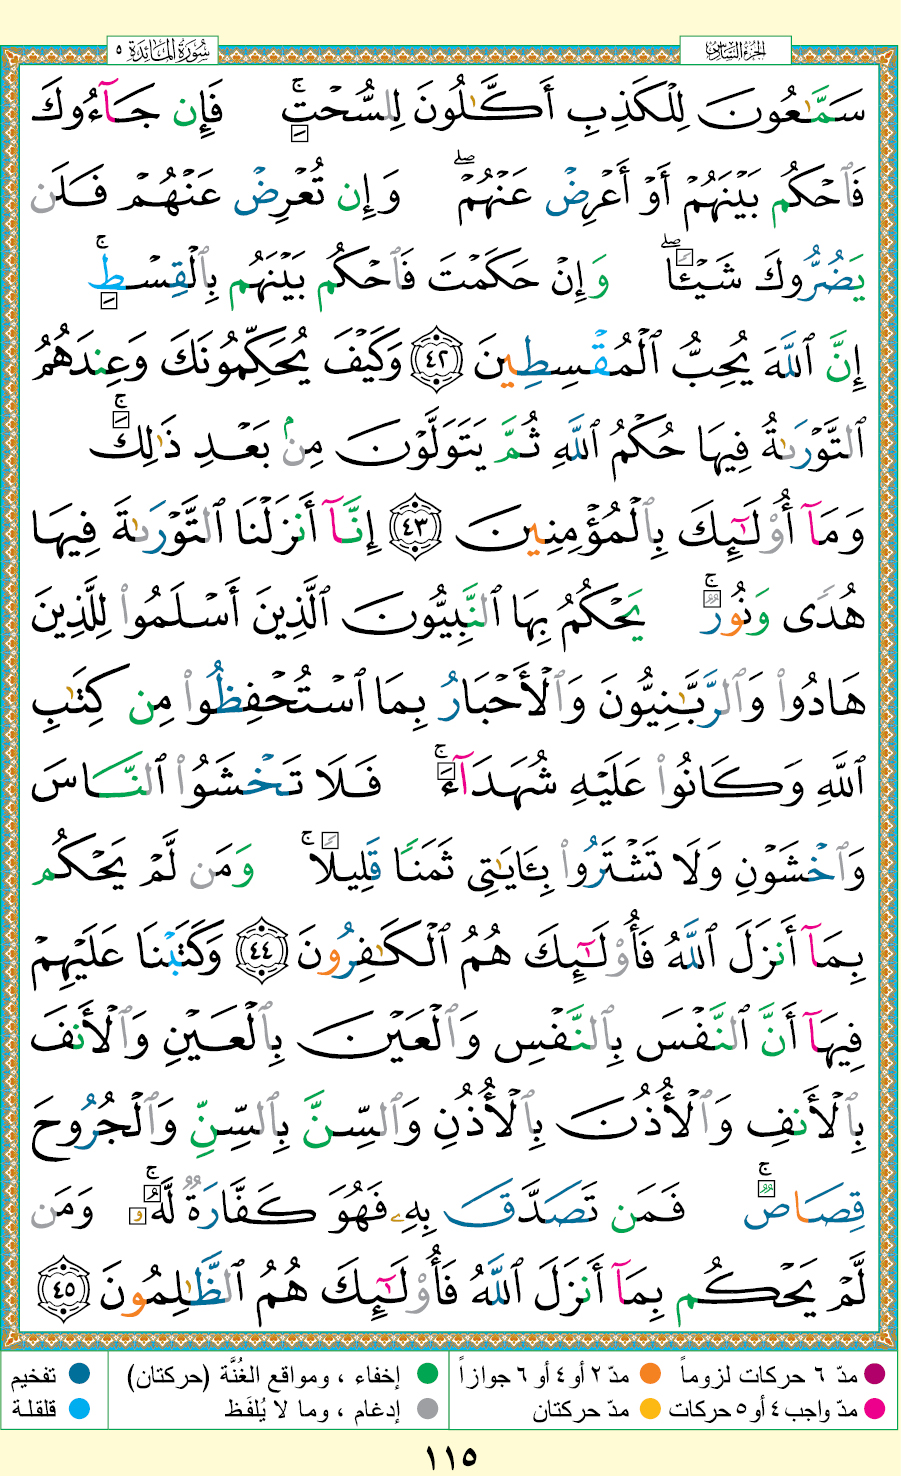 الجزء السادس
سُورَةُ المَائدَة ٥
سَمَّٰعُونَ لِلْكَذِبِ أَكَّٰلُونَ لِلسُّحْتِۚ فَإِن جَآءُوكَ
فَٱحْكُم بَيْنَهُمْ أَوْ أَعْرِضْ عَنْهُمْۖ وَإِن تُعْرِضْ عَنْهُمْ فَلَن
يَضُرُّوكَ شَيْـًٔاۖ وَإِنْ حَكَمْتَ فَٱحْكُم بَيْنَهُم بِٱلْقِسْطِۚ
إِنَّ ٱللَّهَ يُحِبُّ ٱلْمُقْسِطِينَ ٤٢ وَكَيْفَ يُحَكِّمُونَكَ وَعِندَهُمُ
ٱلتَّوْرَىٰةُ فِيهَا حُكْمُ ٱللَّهِ ثُمَّ يَتَوَلَّوْنَ مِنۢ بَعْدِ ذَٰلِكَۚ
وَمَآ أُو۟لَٰٓئِكَ بِٱلْمُؤْمِنِينَ ٤٣ إِنَّآ أَنزَلْنَا ٱلتَّوْرَىٰةَ فِيهَا
هُدًى وَنُورٌۚ يَحْكُمُ بِهَا ٱلنَّبِيُّونَ ٱلَّذِينَ أَسْلَمُوا۟ لِلَّذِينَ
هَادُوا۟ وَٱلرَّبَّٰنِيُّونَ وَٱلْأَحْبَارُ بِمَا ٱسْتُحْفِظُوا۟ مِن كِتَٰبِ
ٱللَّهِ وَكَانُوا۟ عَلَيْهِ شُهَدَآءَۚ فَلَا تَخْشَوُا۟ ٱلنَّاسَ
وَٱخْشَوْنِ وَلَا تَشْتَرُوا۟ بِـَٔايَٰتِى ثَمَنًا قَلِيلًاۚ وَمَن لَّمْ يَحْكُم
بِمَآ أَنزَلَ ٱللَّهُ فَأُو۟لَٰٓئِكَ هُمُ ٱلْكَٰفِرُونَ ٤٤ وَكَتَبْنَا عَلَيْهِمْ
فِيهَآ أَنَّ ٱلنَّفْسَ بِٱلنَّفْسِ وَٱلْعَيْنَ بِٱلْعَيْنِ وَٱلْأَنفَ
بِٱلْأَنفِ وَٱلْأُذُنَ بِٱلْأُذُنِ وَٱلسِّنَّ بِٱلسِّنِّ وَٱلْجُرُوحَ
قِصَاصٌۚ فَمَن تَصَدَّقَ بِهِۦ فَهُوَ كَفَّارَةٌ لَّهُۥۚ وَمَن
لَّمْ يَحْكُم بِمَآ أَنزَلَ ٱللَّهُ فَأُو۟لَٰٓئِكَ هُمُ ٱلظَّٰلِمُونَ ٤٥
مدّ ٦ حركات لزوماً مدّ ٢ أو ٤ أو ٦ جوازاً إخفاء ، ومواقع الغُنَّة (حركتان) تفخيم
مدّ واجب ٤ أو ٥ حركات مدّ حركتان إدغام ، وما لا يُلفَظ قلقلة
١١٥